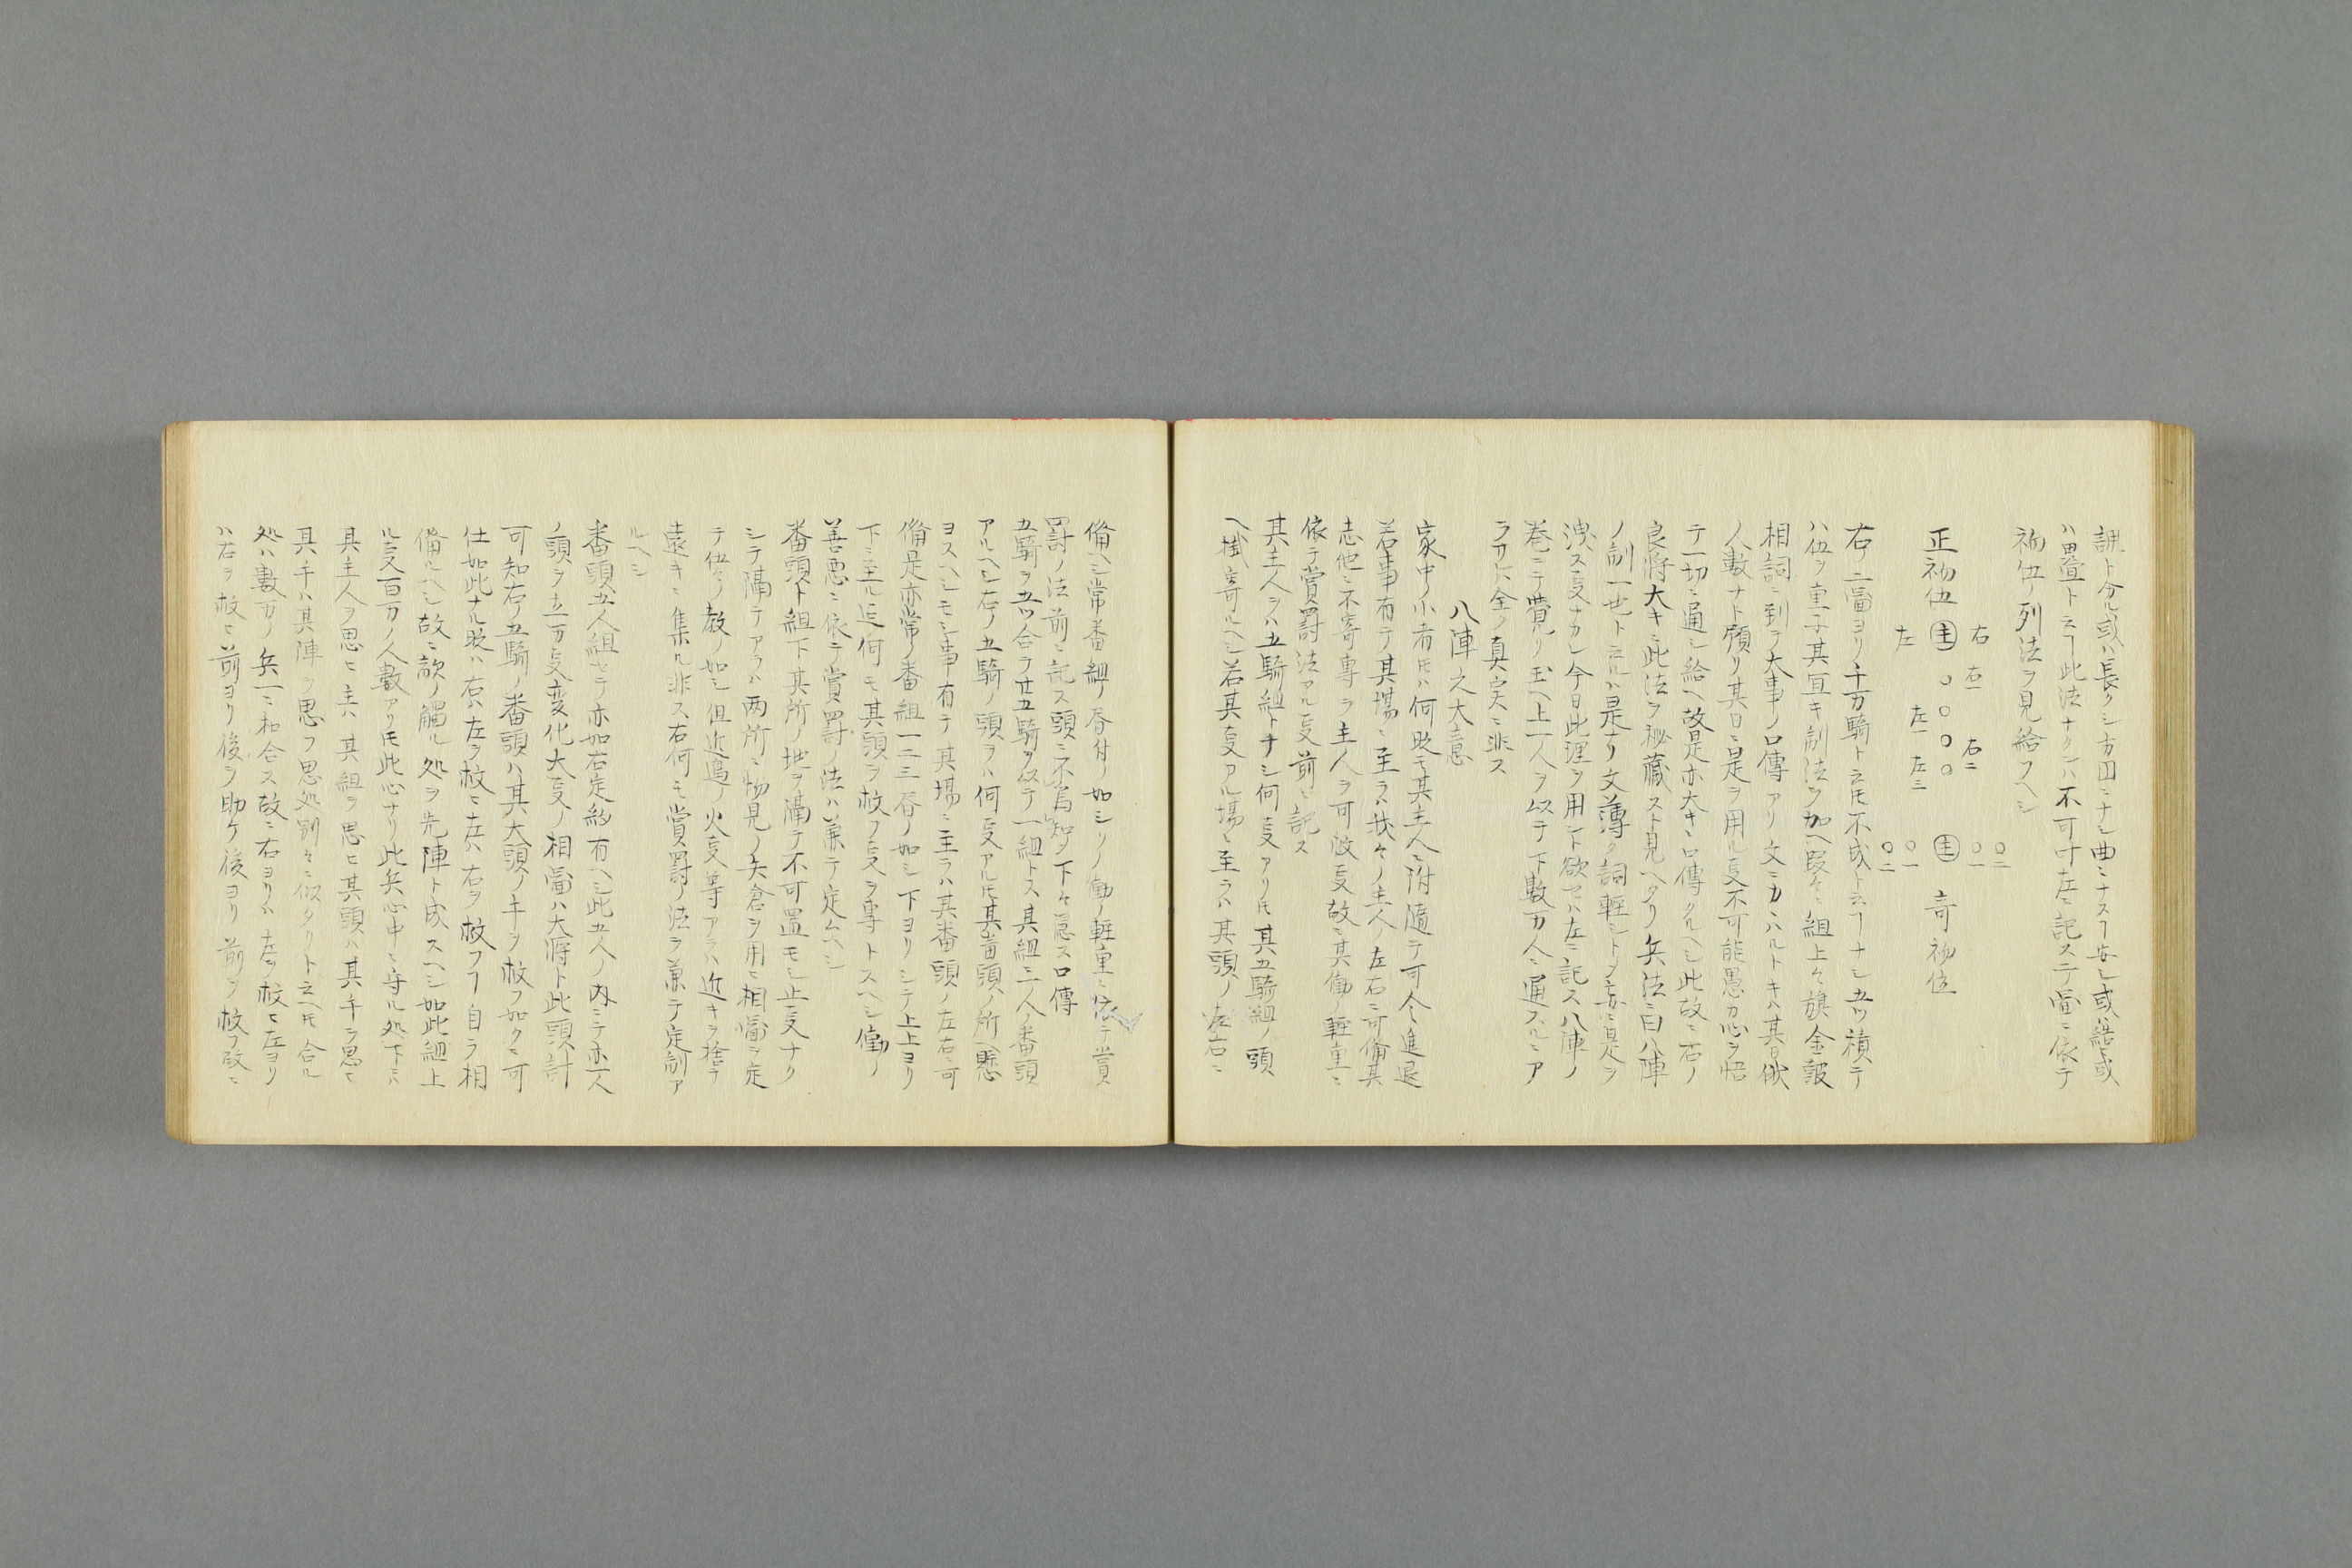 ハ畳ト云フ此法ナクンハ不可叶左ニ記ス手圖ニ依テ
初伍ノ列法ヲ見給フヘシ
右 右一 右二
正初伍 主 ○ ○ ○ ○
左 左一 左二
主 奇初位
○一 ○二
○一 ○二
右ノ二圖ヨリ千万騎ト云氏不成ト云フナシ五ツ積テ
ハ伍ヲ重子其宜キ制法ヲ加ヘ段々ニ組上ケ旗金鼓
相詞ニ到ラ大事ノ口傳アリ文ニカヽハルトキハ其日
人數ナト願リ其日ニ是ヲ用ル㕝不可能愚カ心ヲ悟
テ一切ニ通シ給ヘ故是亦大キニ口傳タルヘシ此故ニ右ノ
良将大キニ此法ヲ秘藏スト見ヘタリ兵法ニ曰八陣
ノ制一也ト云ルハ是ナリ文薄ク詞軽シト是ヲ
洩ス㕝ナカレ今日此理ヲ用ント欲セハ左ニ記ス八陣ノ
巻ニテ覺リ玉ヘ上一人ヲ以テ下數万人ニ通スルニア
ラサレハ全ノ真実ニ非ス
八陣之大意
家中小者氏ハ何時モ其主人ニ附随テ可令進退
若事有テ其場ニ至ラハ我々ノ主人ノ左右ニ可備其
志他ニ不寄専ラ主人ヲ可放㕝故ニ其働ノ軽重ニ
依テ賞罰法アル㕝前ニ記ス
其主人ヲハ五騎組トナシ何㕝アリ氏其五騎組ノ頭
ヘ掛寄ルヘシ若其㕝アル場ニ至ラハ其頭ノ左右ニ
備ヘシ常番組 如シソノ働ノ軽重ニ依テ賞
罰ノ法前ニ記ス頭ニ不為知〆下々隠ス口傳
五騎ヲ五ツ合テ廿五騎ヲ以テ一組トス其組ニ一人ノ番頭
アルヘシ右ノ五騎ノ頭ヲハ何㕝アル氏其番頭ノ所ヘ懸
ヨスヘシモシ事有テ其場ニ至ラハ其番頭ノ左右ニ可
備是亦常ノ番組一二三 ノ如シ下ヨリシテ上上ヨリ
下ニ至ル迄何モ其頭ヲ救フ㕝ヲ専トスヘシ働ノ
善悪ニ依テ賞罰ノ法ハ兼テ定ムヘシ
番頭ト組下其所ノ地ヲ隔テ不可置モシ止㕝ナク
シテ隔テアラハ両所ニ物見ノ矢倉ヲ用ヒ相圖ヲ定
テ伍々ノ教ノ如シ但近邉ノ火㕝等アラハ近キヲ捨テ
遠キニ集ルニ非ス右何モ賞罰ノ法ヲ兼テ定制ア
ルヘシ
番頭五人組セテ亦如右定約有ヘシ此五人ノ内ニテ亦一人
ノ頭ヲ立万㕝変化大㕝ノ相圖ハ大将ト此頭計
可知右ノ五騎ノ番頭ハ其大頭ノ手ヲ救フ如クニ可
仕如此ナル時ハ右ハ左ヲ救ヒ左ハ右ヲ救フフ自ラ相
備ルヘシ故ニ敵ノ觸ル処ヲ先陣ト成スヘシ如此組上
ル㕝百万ノ人數アリ氏此心ナリ此矢心中ニ守ル処下ニハ
其主人ヲ思ヒ主ハ其組ヲ思ヒ其頭ハ其手ヲ思ヒ
其手ハ其陣ヲ思フ思処別々ニ似タリト云ヘ氏合ル
処ハ數万ノ兵一ニ和合ス故ニ右ヨリハ左ヲ救ヒ左ヨリ
ハ右ヲ救ヒ前ヨリ後ヲ助ケ後ヨリ前ヲ救フ故ニ